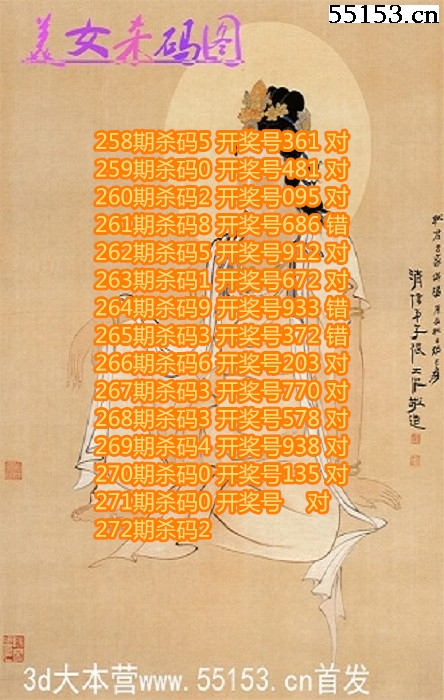 55153.cn
美女杀码图
258期杀码5 开奖号361 对
259期杀码0 开奖号481 对
260期杀码2 开奖号095 对
261期杀码8 开奖号686 错
262期杀码5 开奖号912 对
263期杀码1 开奖号672 对
264期杀码9 开奖号933 错
265期杀码3 开奖号372 错
266期杀码6 开奖号203 对
267期杀码3 开奖号770 对
268期杀码3 开奖号578 对
269期杀码4 开奖号938 对
270期杀码0 开奖号135 对
271期杀码0 开奖号 对
272期杀码2
3d大本营www.55153.cn首发